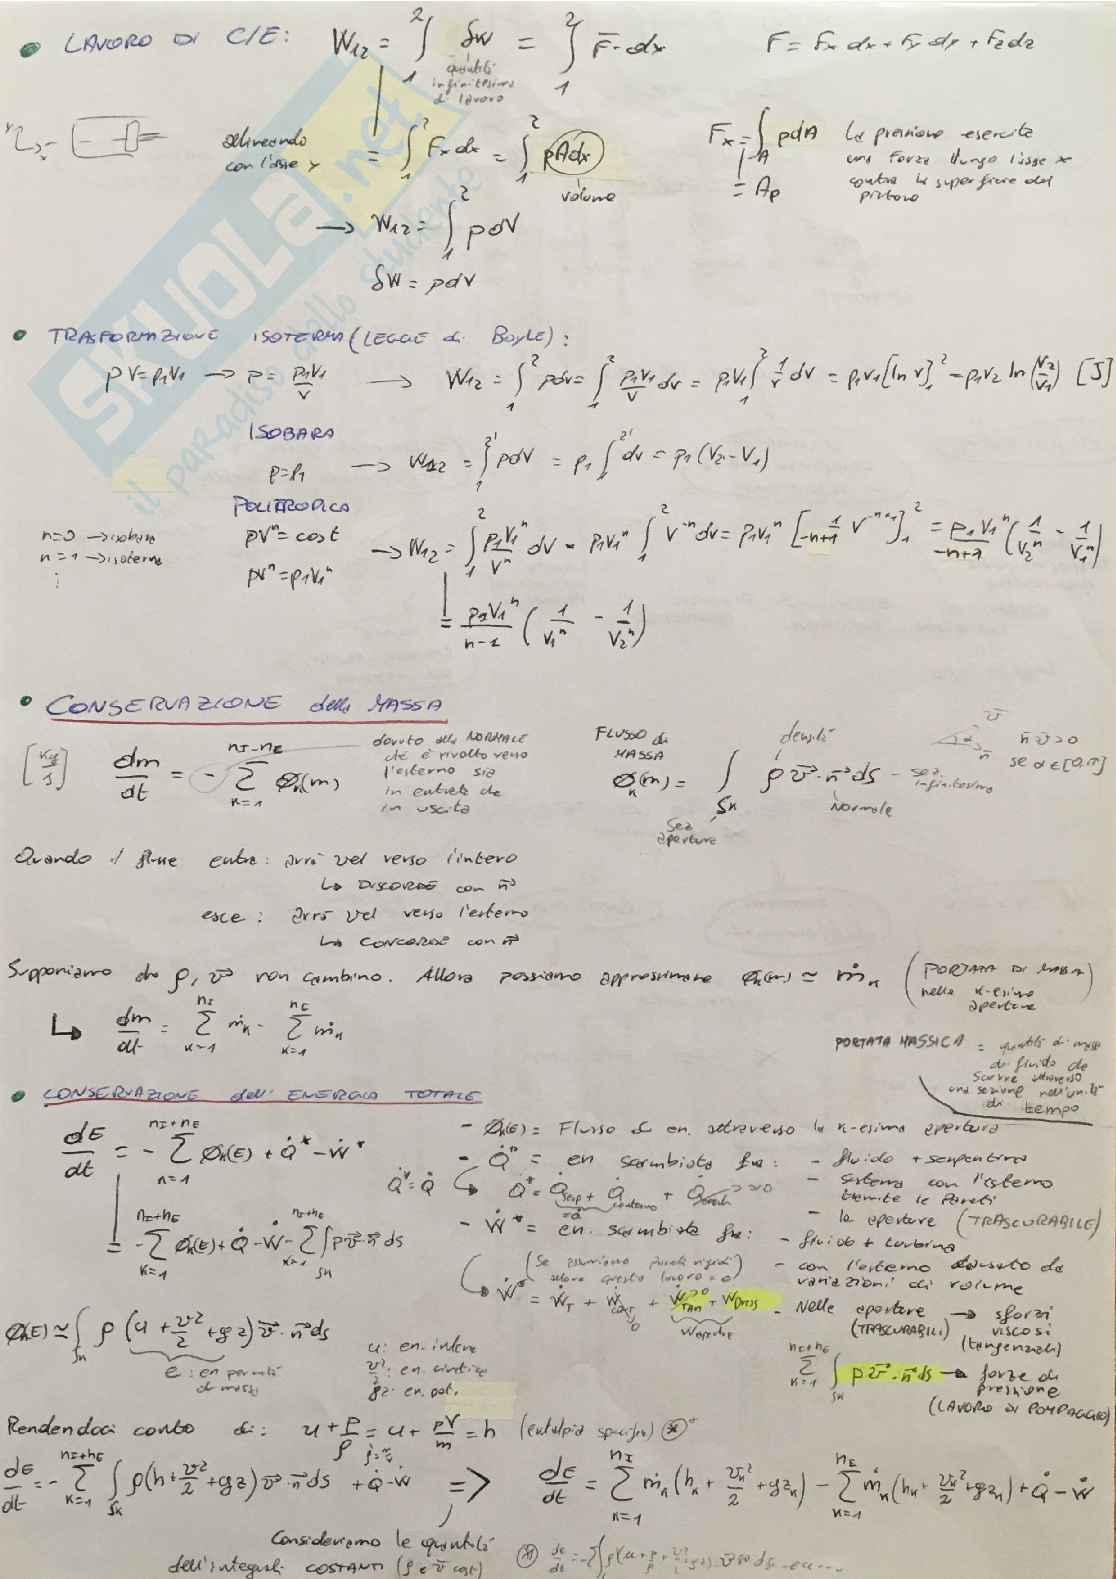 • LAVORO DI C/E: W₁₂ = ∫₁² δW = ∫₁² F̄·dx F = Fx dx + Fy dy + Fz dz
quantità
infinitesima
di lavoro
allineando
con l'asse x
= ∫₁² Fx dx = ∫₁² pAdx
volume
Fx = ∫_A pdA
= Ap
la pressione esercita
una forza lungo l'asse x
contro la superficie del
pistone
→ W₁₂ = ∫₁² pdV
δW = pdV
• TRASFORMAZIONE ISOTERMA (LEGGE di Boyle):
pV = p₁V₁ → p = p₁V₁/V → W₁₂ = ∫₁² pdv = ∫₁² p₁V₁/V dv = p₁V₁ ∫₁² 1/V dv = p₁V₁ [ln V]₁² = p₁V₂ ln(V₂/V₁) [J]
ISOBARA
p = p₁ → W₁₂ = ∫₁²' pdV = p₁ ∫₁²' dv = p₁(V₂-V₁)
POLITROPICA
n=0 → isobara
n=1 → isoterma
⋮
pVⁿ = cost
pVⁿ = p₁V₁ⁿ
→ W₁₂ = ∫₁² p₁V₁ⁿ/Vⁿ dV = p₁V₁ⁿ ∫₁² V⁻ⁿ dv = p₁V₁ⁿ [1/(-n+1) V⁻ⁿ⁺¹]₁² = p₁V₁ⁿ/(-n+1) (1/V₂ⁿ - 1/V₁ⁿ)
= p₁V₁ⁿ/(n-1) (1/V₁ⁿ - 1/V₂ⁿ)
• CONSERVAZIONE della MASSA
[Kg/s] dm/dt = - Σ_{k=1}^{nI-nE} Φk(m)
dovuto alla NORMALE
che è rivolta verso
l'esterno sia
in entrata che
in uscita
FLUSSO di
MASSA
Φk(m) = ∫_{Sk} ρ v⃗·n⃗ ds
densità
Normale
sez
apertura
sez.
infinitesima
n̄ v̄ > 0
se α∈[0,π]
Quando il flusso entra: avrà vel verso l'interno
↳ DISCORDE con n⃗
esce: avrà vel verso l'esterno
↳ CONCORDE con n⃗
Supponiamo che ρ, v⃗ non cambino. Allora possiamo approssimare Φk(m) ≃ ṁk (PORTATA DI MASSA)
nella k-esima
apertura
↳ dm/dt = Σ_{k=1}^{nI} ṁk - Σ_{k=1}^{nE} ṁk
PORTATA MASSICA = quantità di massa
di fluido che
scorre attraverso
una sezione nell'unità
di tempo
• CONSERVAZIONE dell'ENERGIA TOTALE
dE/dt = - Σ_{k=1}^{nI+nE} Φk(E) + Q̇* - Ẇ*
= - Σ_{k=1}^{nI+nE} Φk(E) + Q̇ - Ẇ - Σ_{k=1}^{nI+nE} ∫_{Sk} p v⃗·n⃗ ds
- Φk(E) = Flusso di en. attraverso la k-esima apertura
- Q̇* = en scambiata fra: - fluido + serpentina
- sistema con l'esterno
tramite le pareti
- le aperture (TRASCURABILE)
Q̇* = Q̇
- Ẇ* = en. scambiata fra: - fluido + turbina
- con l'esterno causato da
variazioni di volume
(Se assumiamo pareti rigidi
allora questo lavoro = 0)
- Nelle aperture → sforzi
(TRASCURABILI) viscosi
(tangenziali)
Σ_{k=1}^{nI+nE} ∫_{Sk} p v⃗·n⃗ ds → forze di
pressione
(LAVORO DI POMPAGGIO)
Φk(E) ≃ ∫_{Sk} ρ (u + v²/2 + gz) v⃗·n⃗ ds
e: en per unità
di massa
u: en. interna
v²/2: en. cinetica
gz: en. pot.
Rendendoci conto di: u + p/ρ = u + pV/m = h (entalpia specifica) ⊛
dE/dt = - Σ_{k=1}^{nI+nE} ∫_{Sk} ρ(h + v²/2 + gz) v⃗·n⃗ ds + Q̇ - Ẇ => dE/dt = Σ_{k=1}^{nI} ṁk (hk + vk²/2 + gzk) - Σ_{k=1}^{nE} ṁk (hk + vk²/2 + gzk) + Q̇ - Ẇ
Consideriamo le quantità
dell'integrali COSTANTI (ρ e v̄ cost)
SKUOLA.net
il paradiso dello studente